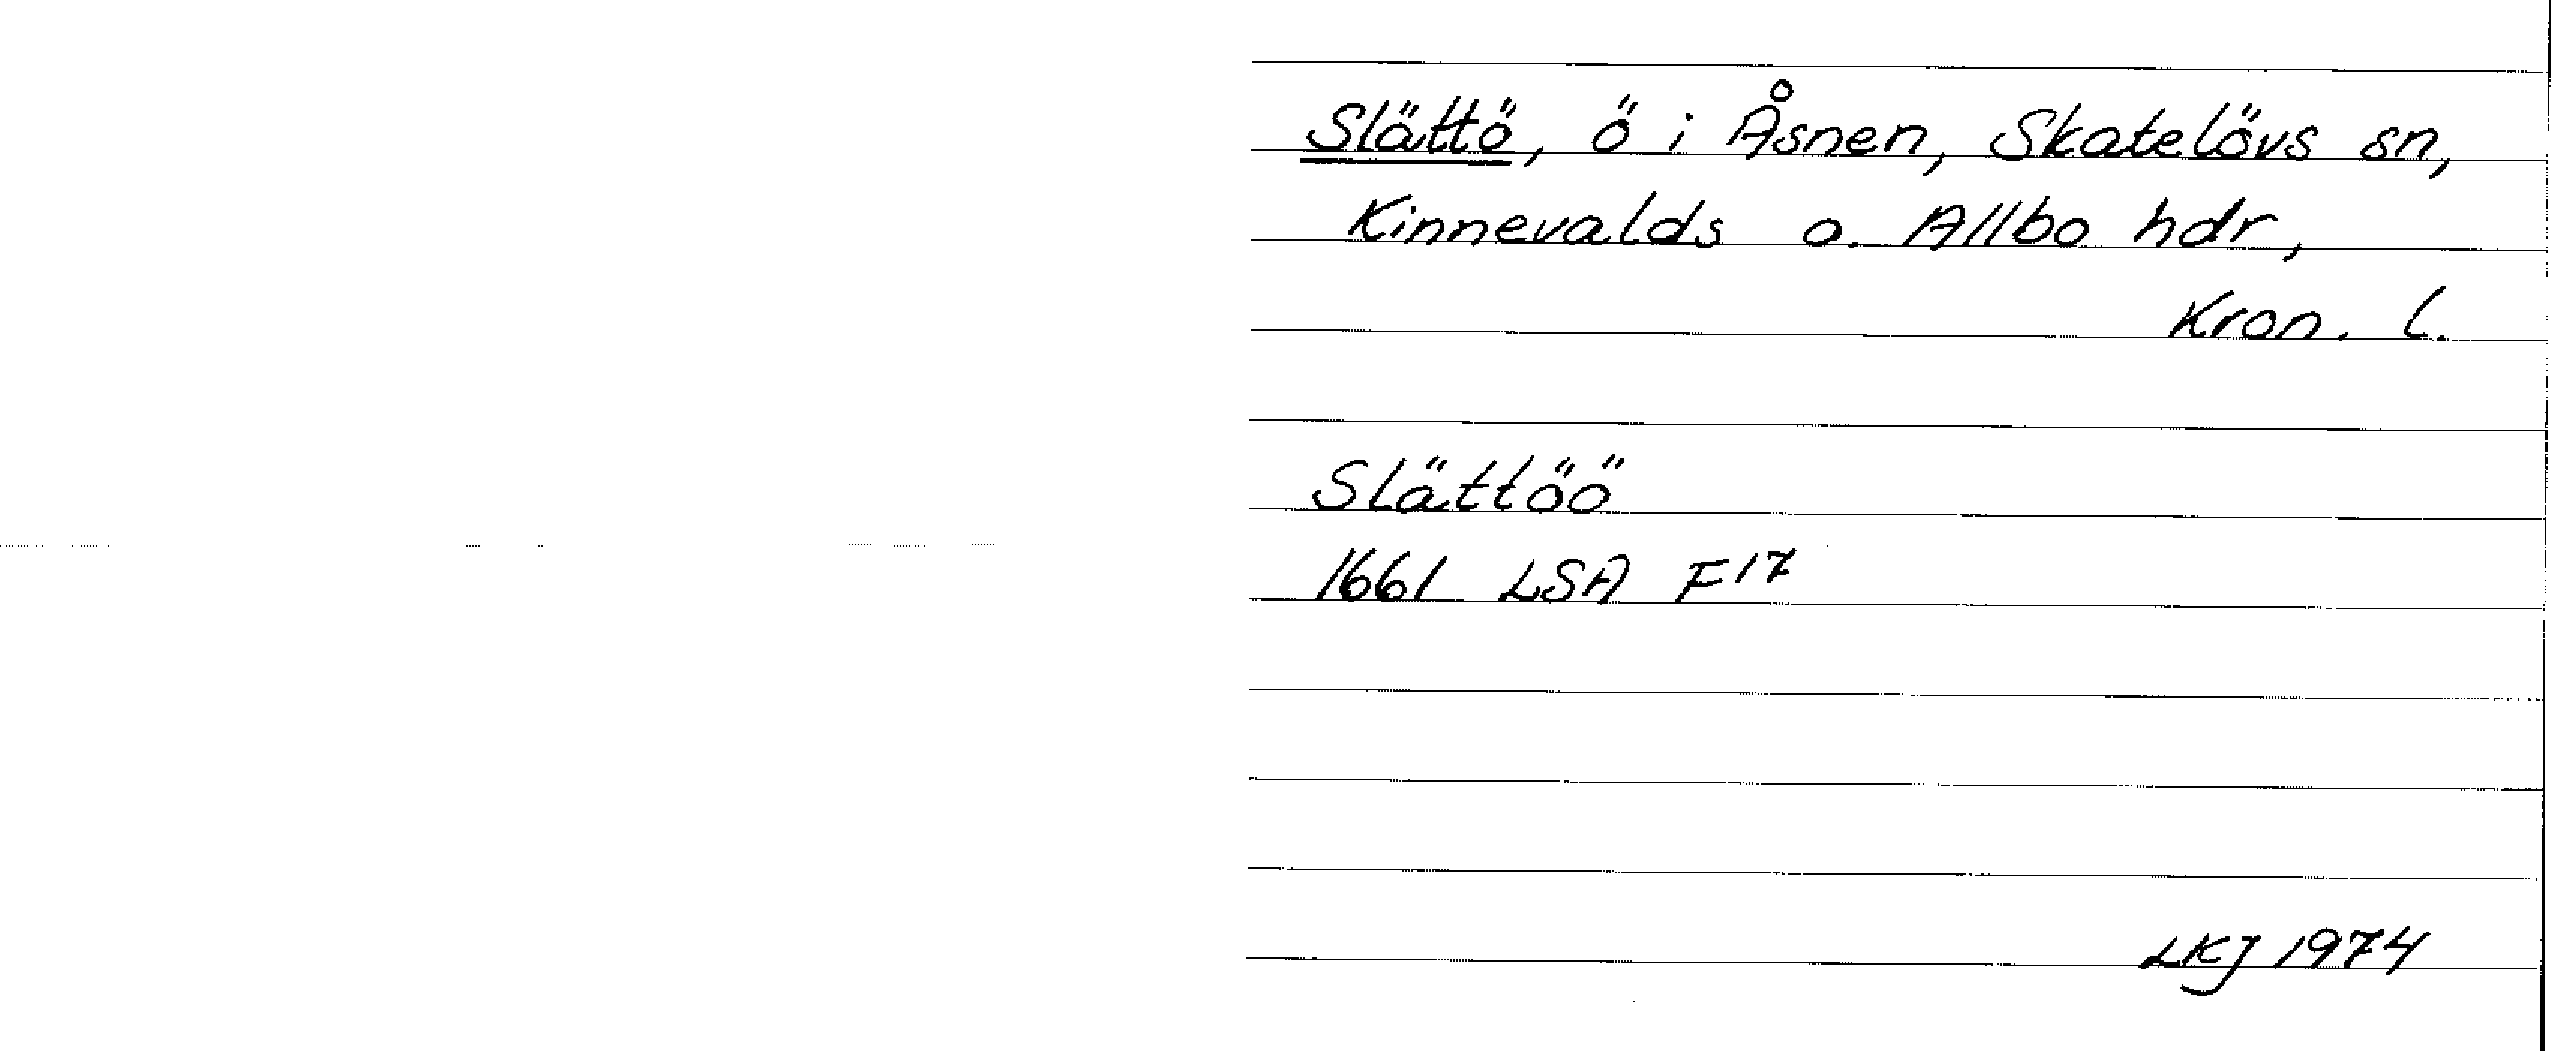 Slättö, ö i Åsnen, Skatelövs sn,
Kinnevalds o. Allbo hdr,
Kron. l.
Slättöö
1661 LSA F17
LKJ 1974